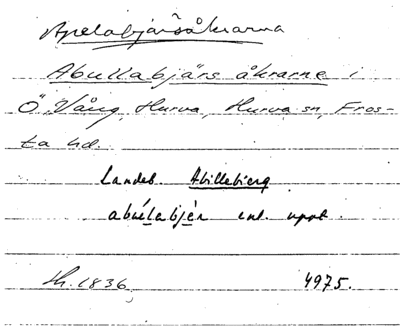 Apelabjärsåkrarna
Abullabjärs åkrarne i
Ö. Vång, Hurva, Hurva sn, Fros-
ta hd.
Landsb. Abillebierg
abúlabjär enl. uppt.
Sk. 1836. 4975.